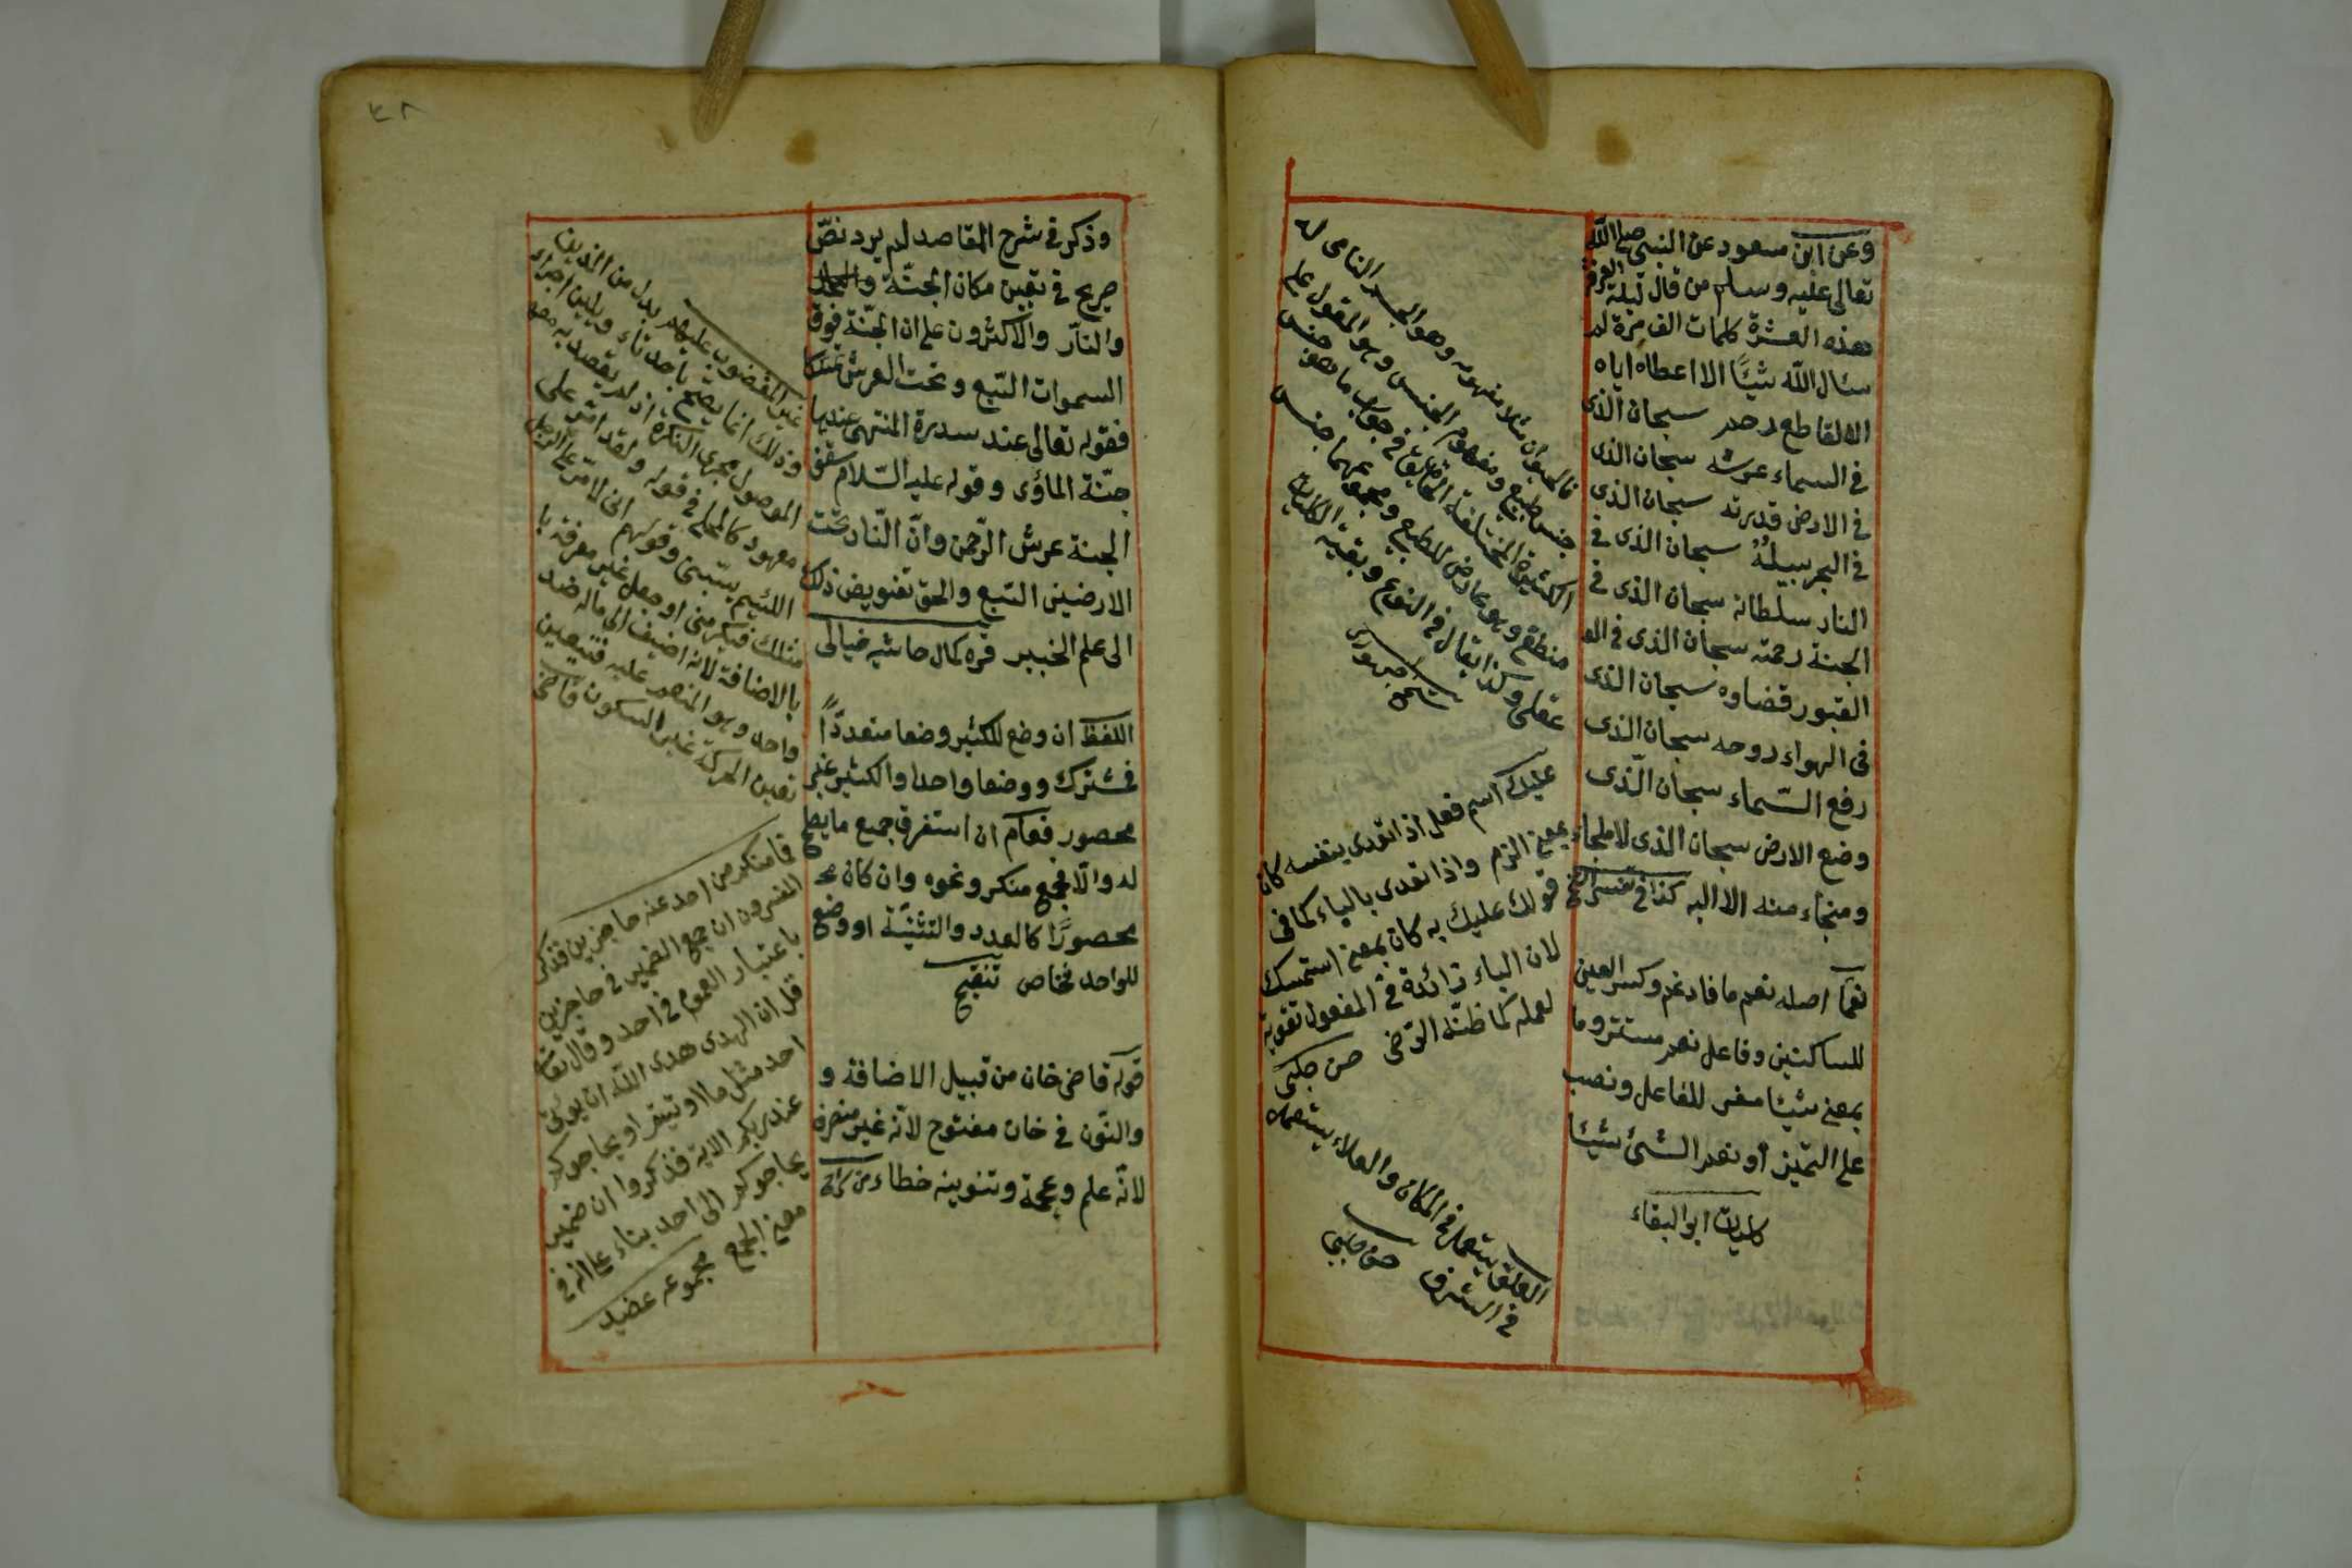 وعن ابن مسعود عن النبي صلى الله
تعالى عليه وسلم من قال ليلة العرفة
هذه العشرة كلمات الف مرة لم
سئال الله شيئًا الا اعطاه اياه
الا لقاطع رحم سبحان الذى
فى السماء عرشه سبحان الذى
فى الارض قدرته سبحان الذى
فى البحر سبيله سبحان الذى فى
النار سلطانه سبحان الذى فى
الجنة رحمته سبحان الذى فى
القبور قضاوه سبحان الذى
فى الهواء روحه سبحان الذى
رفع السّماء سبحان الّذى
وضع الارض سبحان الذى لا ملجاء
ومنجاء منه الا اليه كذا فى تفسير
نعمّا اصله نعم ما فادغم وكسر العين
للساكنين وفاعل نعم مستتر وما
بمعنى شيئا مفسر للفاعل ونصب
على التميز أو نعم الشئ شيئا
كليات ابو البقاء
فالحيوان مثلا مفهومه وهو الجسم النامى له
جنس طبيع ومفهوم الجنس وهو المقول على
الكثيرة المختلفة الحقايق فى جواب ما هو جنس
منطقى وهو عارض للطبيع ومجموعهما جنس
عقلى وكذا يقال فى النوع وبقية الكليات
عليك اسم فعل اذا تعدى بنفسه كان
بمعنى الزم واذا تعدى بالباء كما فى
قولك عليك به كان بمعنى استمسك
لان الباء زائدة فى المفعول تقوية
لعمله كما ظنّه الرّضى حسن جلبى
العلو يستعمل فى المكان والعلاء يستعمل
فى الشرف حسن جلبى
٤٨
وذكر فى شرح المقاصد لم يرد نصّ
صريح فى تعيين مكان الجنّة
والنار والاكثرون على ان الجنّة فوق
السموات السّبع وتحت العرش تمسّكا
فقوله تعالى عند سدرة المنتهى عندها
جنّة المأوى وقوله عليه السّلام سقف
الجنة عرش الرّحمن وانّ النّار تحت
الارضين السّبع والحق تفويض ذلك
الى علم الخبير قره كمال حاشيه خيالى
اللفظ ان وضع للكثير وضعا متعددًا
فمشترك ووضعا واحدا والكثير غير
محصور فعام ان استغرق جميع ما يصلح
له والّا فجمع منكر ونحوه وان كان
محصورًا كالعدد والتثنيّة او وضع
للواحد فخاص تنقيح
قوله قاضى خان من قبيل الاضافة و
والنّون فى خان مفتوح لانّه غير منصرف
لانّه علم وعجمة وتنوينه خطاء
غير المغضوب عليهم بدل من الذين
وذلك انما يصح باحد تاء ويلين اجراء
الموصول مجرى النكرة اذ لم يقصد به معهود
معهود كالمحلى فى قوله ولقد امر على
اللئيم يسبنى وقولهم انى لامر على الرجل
مثلك فيكرمنى او جعل غير معرفة با
بالاضافة لانه اضيف الى ماله ضد
واحد وهو المنعم عليه فتتعين
تعين الحركة غير السكون قاضى
فما منكم من احد عنه حاجزين فذكر
المفسرون ان جمع الضمير فى حاجزين
باعتبار العموم فى احد وقال تعالى
قل ان الهدى هدى الله ان يؤتى
احد مثل ما اوتيتم او يحاجوكم
عند ربكم الاية فذكروا ان ضمير
يحاجوكم الى احد بناء على انه فى
معنى الجمع مجموعه